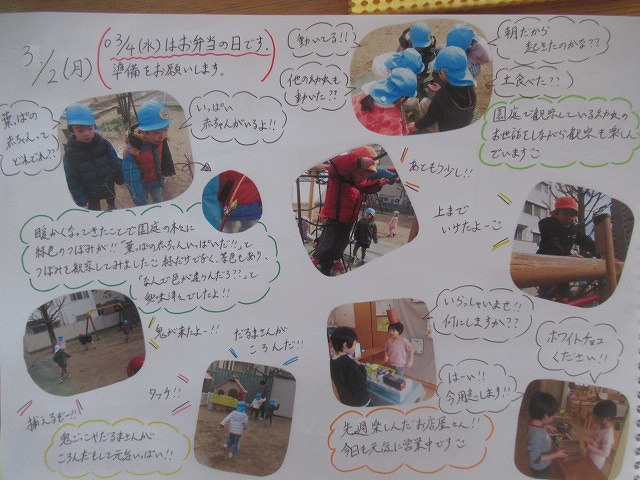 3/2(月)
○3/4(水)はお弁当の日です。
準備をお願いします。
動いてる!!
他の幼虫も
動いた??
朝だから
起きたのかな??
土食べた??
園庭で観察している幼虫の
お世話をしながら観察も楽しん
でいます
葉っぱの
赤ちゃんって
どれどれ??
いっぱい
赤ちゃんがいるよ!!
暖かくなってきたことで園庭の木に
緑色のつぼみが!!「葉っぱの赤ちゃんいっぱいだ!!」と
つぼみを観察してみました 緑だけでなく、茶色もあり、
「なんで色が違うんだろ??」と
興味津々でしたよ!!
あともう少し!!
上まで
いけたよーo
鬼が来たよー!!
だるまさんが
ころんだ!!
タッチ!!
捕えるぞー!!
鬼ごっこやだるまさんが
ころんだをして元気いっぱい!!
いらっしゃいませ!!
何にしますか??
はーい!!
今用意します!!
ホワイトチョコ
ください!!
先週楽しんだお店屋さん!!
今日も元気に営業中です